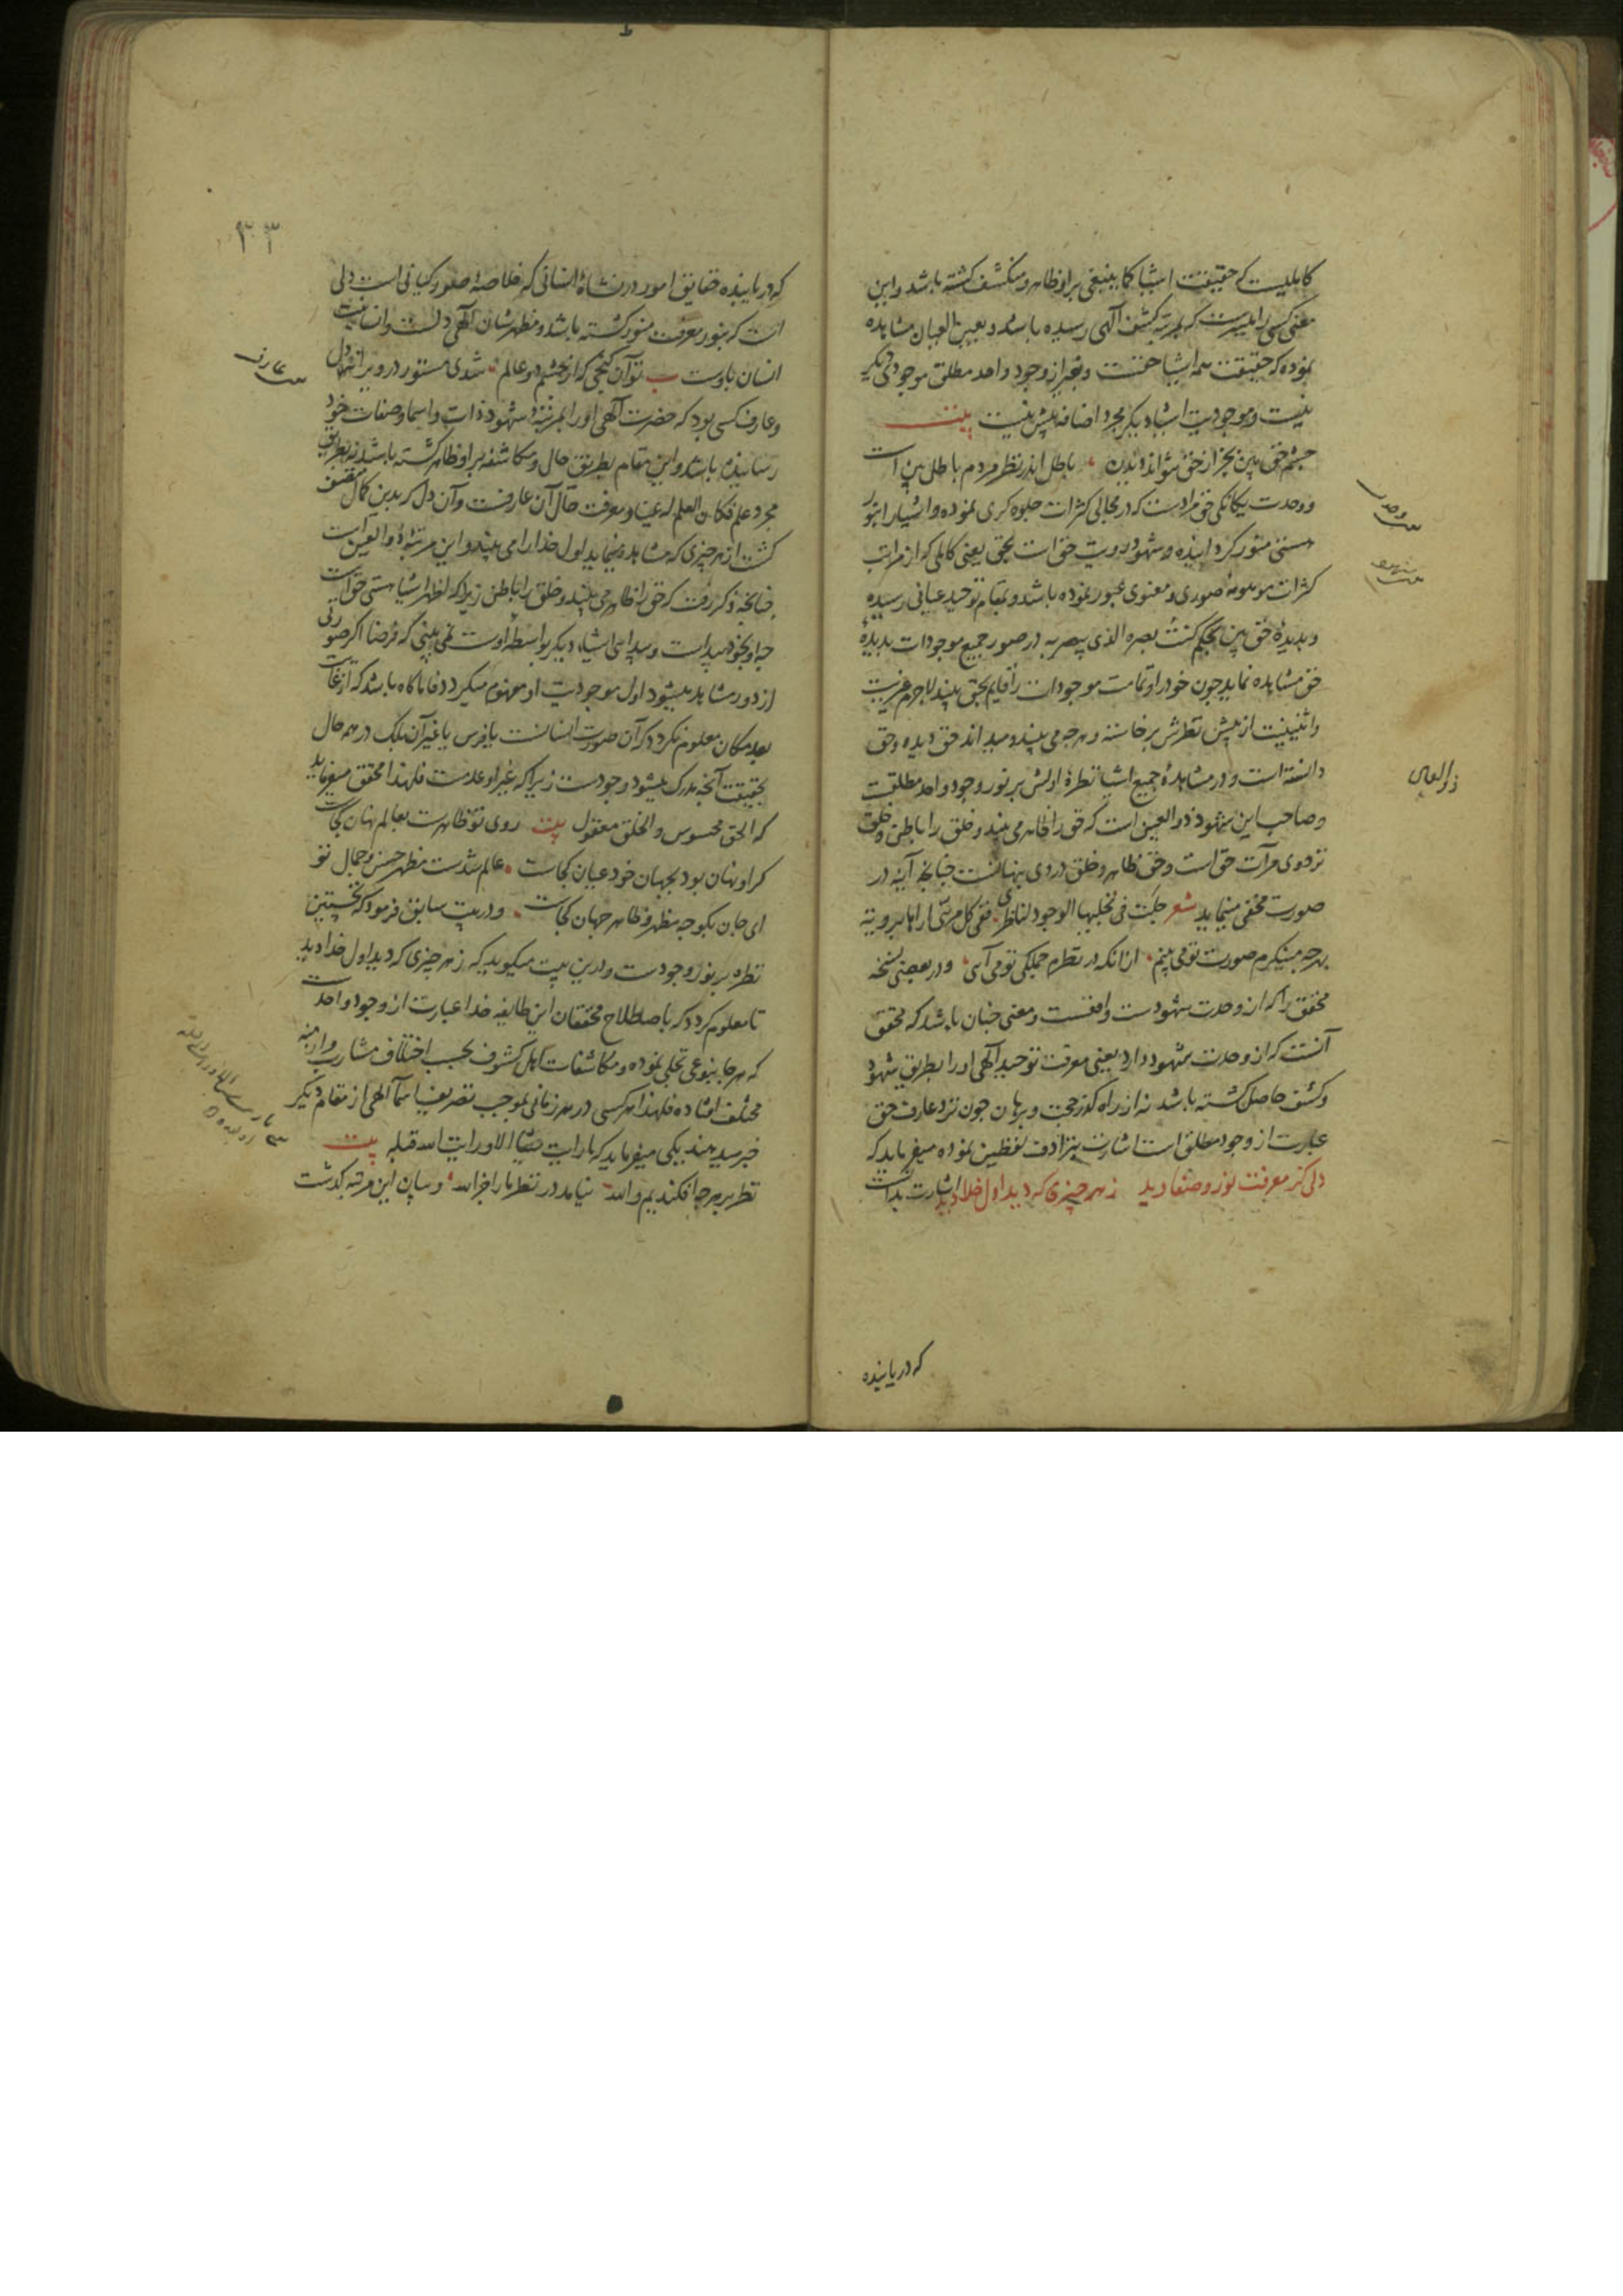 کاملیست که حقیقت اشیا کما ینبغی برو ظاهر و منکشف کشته باشد و این
معنی کسی را میسرست که بمرتبه کشف الهی رسیده باشد و بعین العیان مشاهده
نموده که حقیقت همه اشیا حقست و بغیر از وجود واحد مطلق موجودی دیکر
نیست و موجودیت اشیا دیکر مجرد اضافه بیش نیست بیت
چشم حق بین بجز از حق نتواند دیدن باطل اندر نظر مردم باطل بین است
و وحدت یکانکی حق مرادست که در مجالی کثرات جلوه کری نموده و اشیا را بنور
هستی منور کردانیده و شهود رویت حق است بحق یعنی کاملی که از مراتب
کثرات موهومه صوری و معنوی عبور نموده باشد و بمقام توحید عیانی رسیده
و بدیده حق بین بحکم کنت بصره الذی یبصر به در صور جمیع موجودات بدیده
حق مشاهده نماید چون خود را و تمامت موجودات را قایم بحق بیند لاجرم غیریت
و اثنینیت از پیش نظرش برخاسته و هرچه می بیند و میداند حق دیده و حق
دانسته است و در مشاهده جمیع اشیا نظره اولش بر نور وجود واحد مطلقست
و صاحب این شهود ذو العین است که حق را ظاهر می بیند و خلق را باطن و خلق
نزد وی مرآت حق است و حق ظاهر و خلق در وی پنهانست چنانچه آینه در
صورت مخفی مینماید شعر جلت فی تجلیها الوجود لناظری ففی کل مرئی اراها برویة
بهرچه مینکرم صورت تو می بینم ازانکه در نظرم جملکی تو می آی و در بعضی نسخه
محقق را که از وحدت شهودست واقعست و معنی چنان باشد که محقق
آنست که از وحدت شهود دارد یعنی معرفت توحید الهی او را بطریق شهود
و کشف حاصل کشته باشد نه از راه کذر حجت و برهان چون نزد عارف حق
عبارت از وجود مطلق است اشارت بترادف لفظین نموده میفرماید که
دلی کز معرفت نور و صفا دید ز هر چیزی که دید اول خدا دید اشارت بدانست
که دریابنده
وحدت
شهود
ذو العین
۳۳
که دریابنده حقایق امور در نشاه انسانی که خلاصه صور کیانی است دلی
است که بنور معرفت منور کشته باشد و مظهر شان الهی دلست و انسانیت
انسان باوست تو آن کنجی که از چشم دو عالم شدی مستور در ویرانه دل
و عارف کسی بود که حضرت الهی او را بمرتبه شهود ذات و اسما و صفات خود
رسانیده باشد و این مقام بطریق حال و مکاشفه برو ظاهر کشته باشد نه بطریق
مجرد علم فکان العلم له عینا و معرفت حال آن عارفست و آن دل که بدین کمال متصف
کشت از هر چیزی که مشاهده مینماید اول خدا را می بیند و این مرتبه ذو العین است
چنانچه ذکر رفت که حق را ظاهر می بیند و خلق را باطن زیرا که اظهر اشیا هستی حق است
چه او بخود پیداست و پیدائی اشیاء دیکر بواسطه اوست نمی بینی که فرضا اکر صورتی
از دور مشاهد میشود اول موجودیت او مفهوم میکردد فاما کاه باشد که از غایت
بعد مکان معلوم نکردد که آن صورت انسانست یا فرس یا غیر آن بلک در همه حال
بحقیقت آنچه مدرک میشود وجودست زیرا که غیر او عدمست فلهذا محقق میفرماید
که الحق محسوس و الخلق معقول بیت روی تو ظاهرست بعالم نهان کجاست
کر او نهان بود بجهان خود عیان کجاست عالم شدست مظهر حسن و جمال تو
ای جان بکو چه مظهر و ظاهر جهان کجاست و در بیت سابق فرمود که نخستین
نظره بر نور وجودست و درین بیت میکوید که ز هر چیزی که دید اول خدا دید
تا معلوم کردد که باصطلاح محققان این طایفه خدا عبارت از وجود واحدست
که هر جا بنوعی تجلی نموده و مکاشفات اهل کشوف بحسب اختلاف مشارب و ازمنه
مختلف افتاده فلهذا هر کسی در هر زمانی بموجب تصریف اسما الهی از مقام دیکر
خبر میدهند یکی میفرماید که ما رایت شیئا الا و رایت الله قبله بیت
نظر بر هرچه افکندیم والله نیامد در نظر ما را جز الله و بیان این مرتبه کذشت
عارف